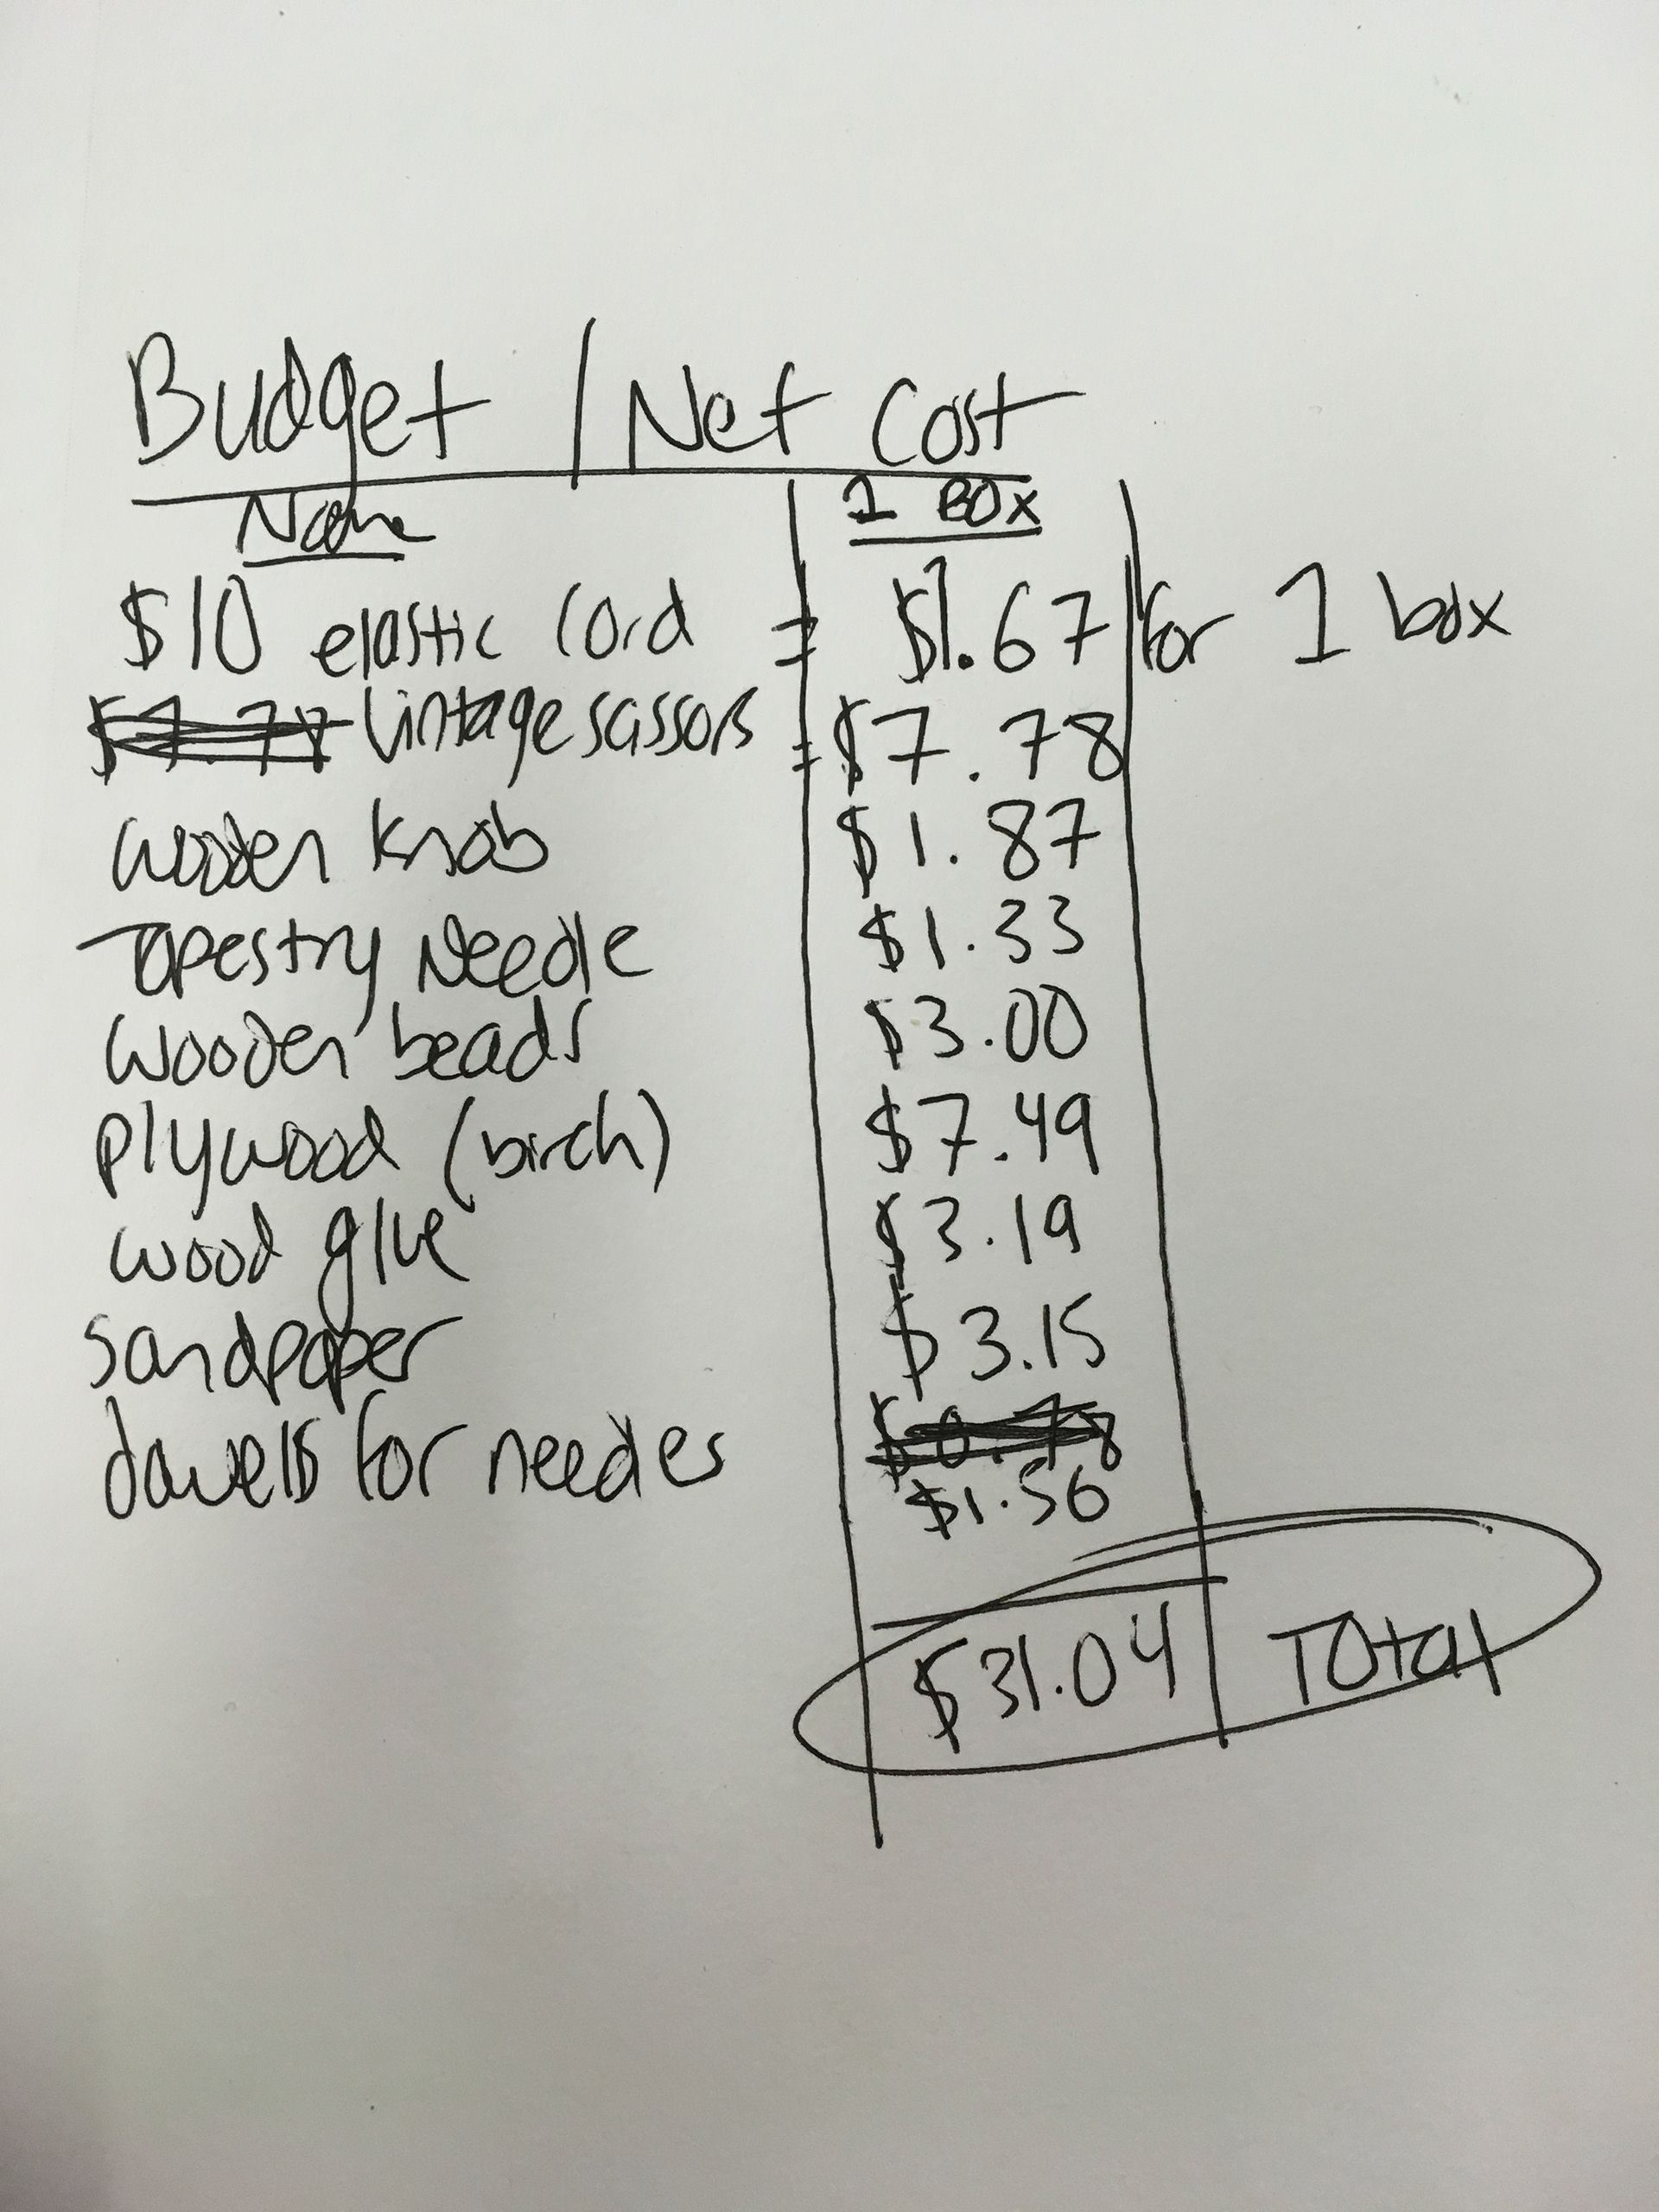 Budget / Net Cost
Name 1 BOX
$10 elastic cord = $1.67 for 1 box
$7.78 Vintage scissors = $7.78
wooden knob $1.87
Tapestry Needle $1.33
wooden beads $3.00
plywood (birch) $7.49
wood glue $3.19
Sandpaper $3.15
dowells for needles $0.78
$1.56
$31.04 Total